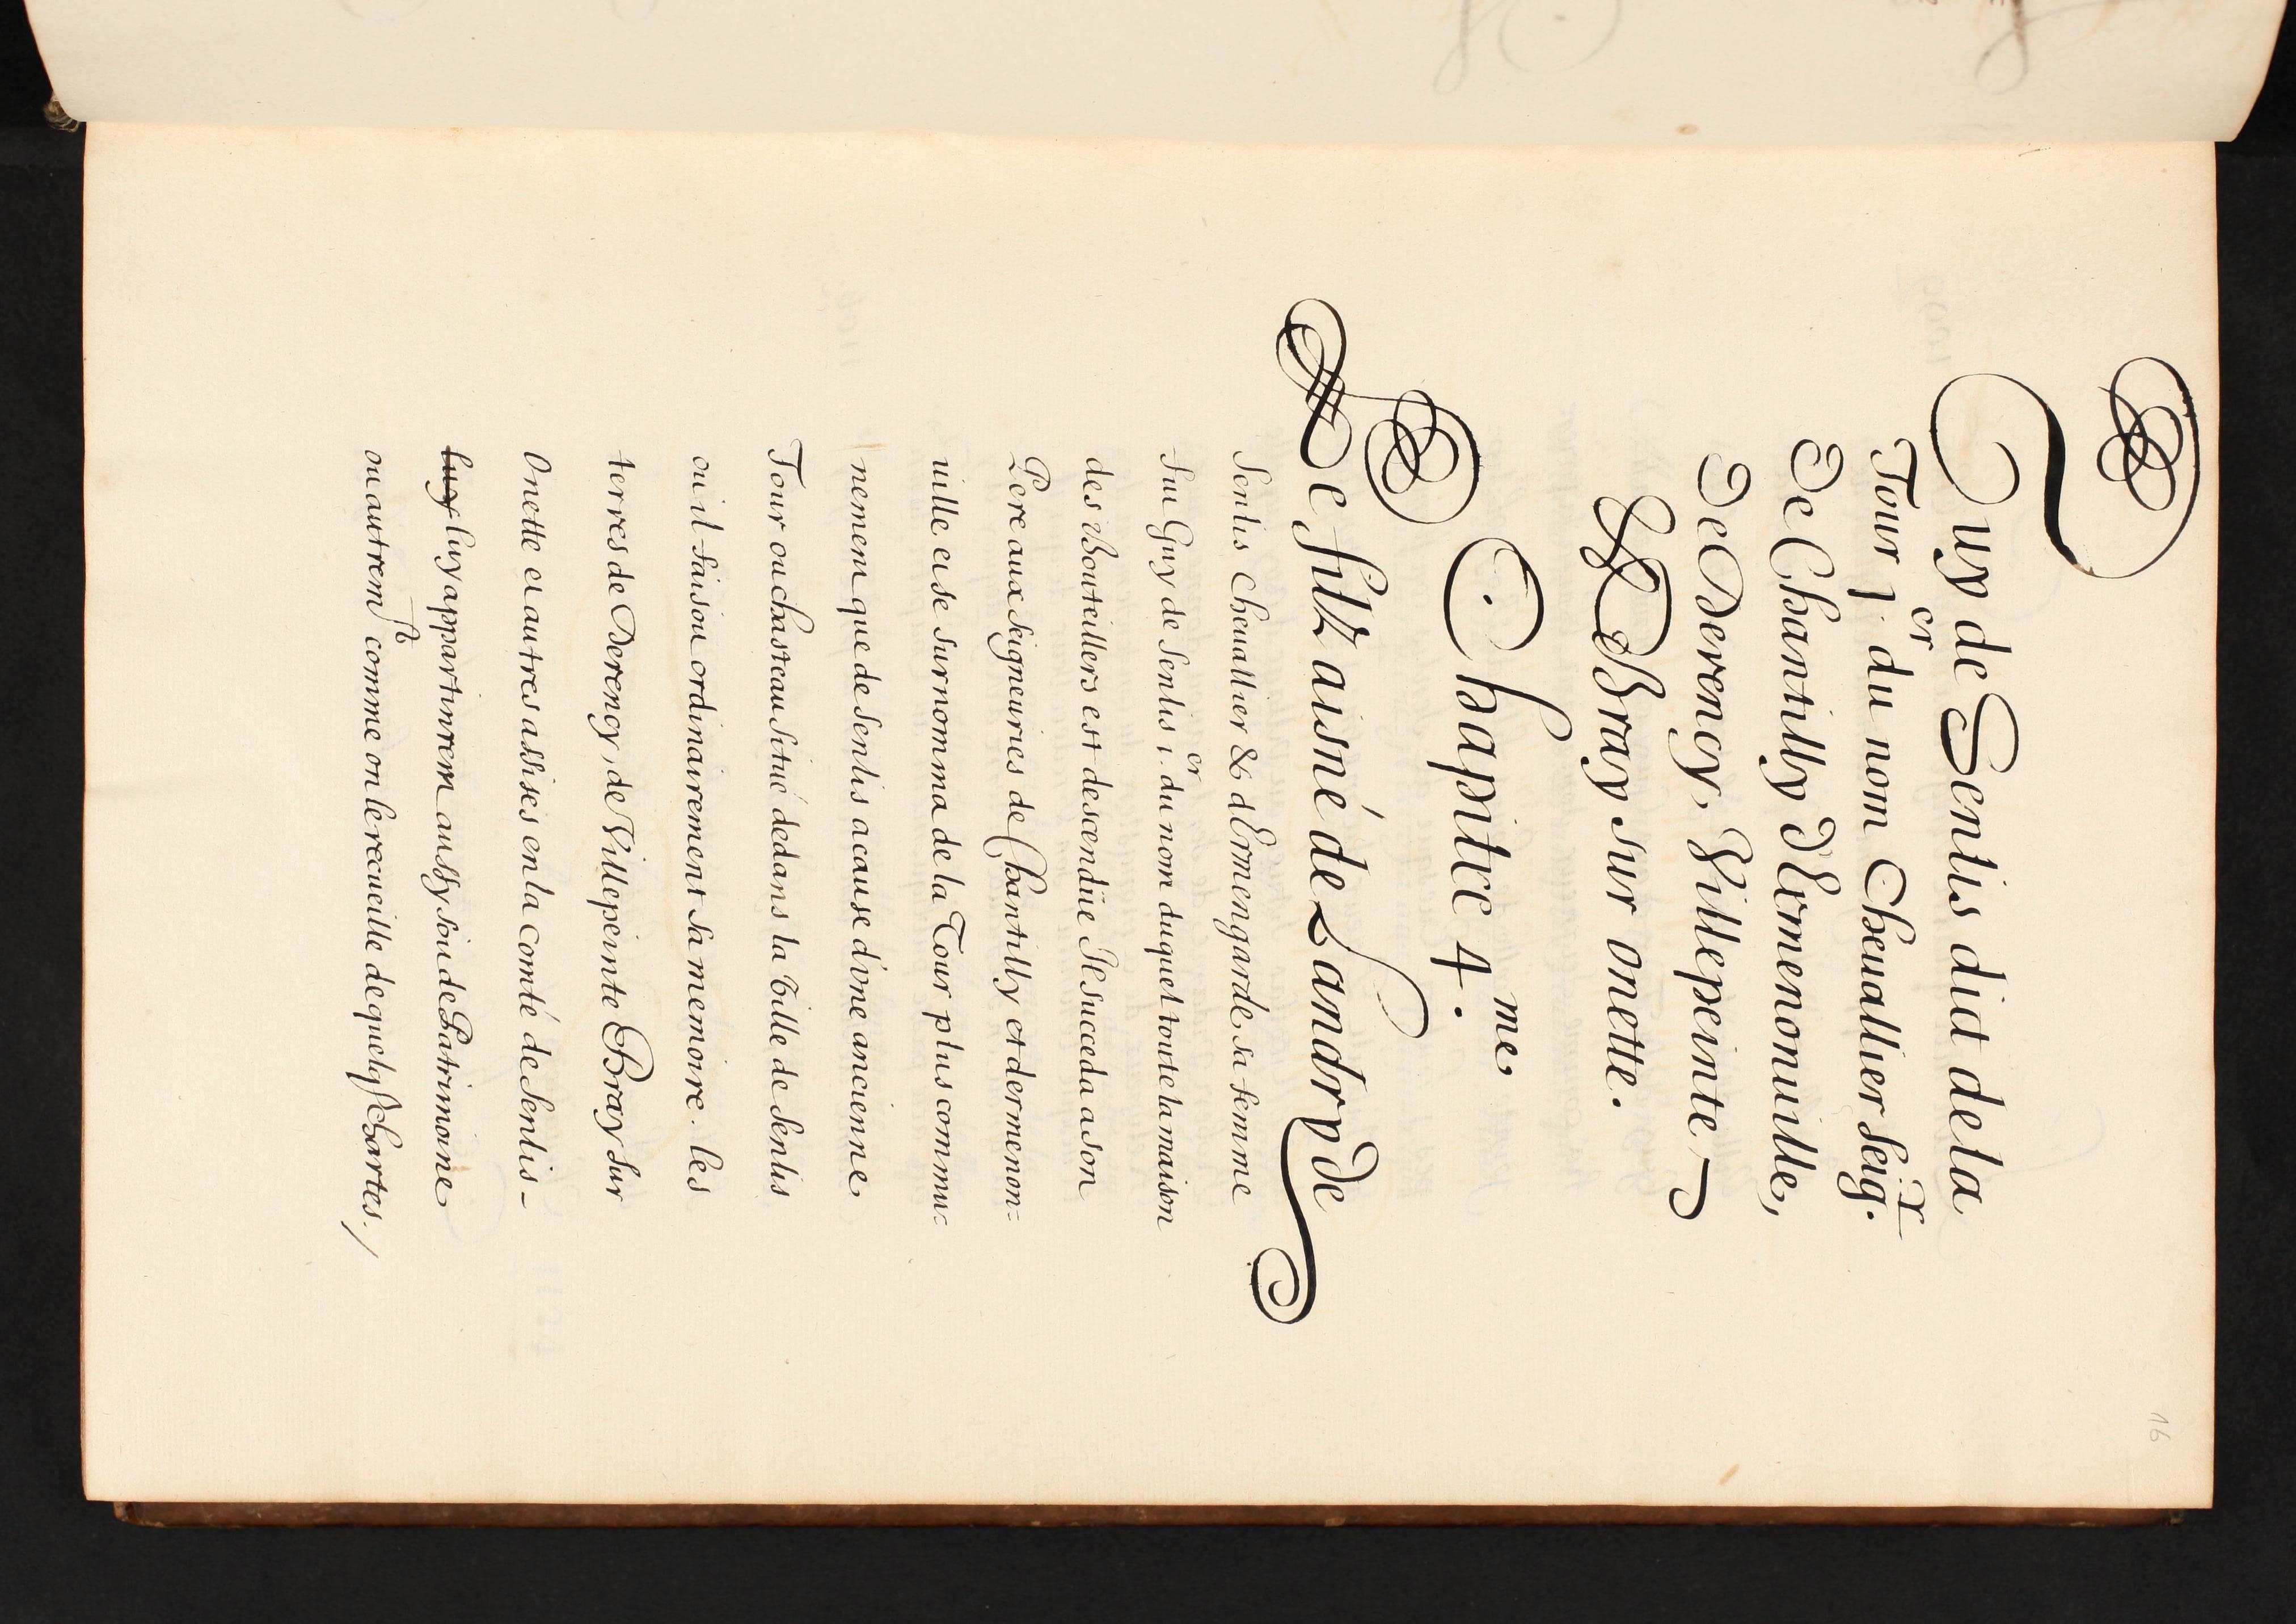 16
Guy de Senlis dict de la
Tour 1.er du nom Cheuallier seig.r
De Chantilly d'Ermenonuille,
De Derency, Villepeinte
& Bray sur onette.
Chapitre 4.me
Le filz aisné de Landry de
Senlis cheuallier & d'Ermengarde sa femme
fut Guy de Senlis 1.er du nom duquel toute la maison
des Bouteillers est descendüe Il succeda a son
Pere aux seigneuries de Chantilly et dermenon=
uille et se surnomma de la Tour plus commu=
nement que de Senlis a cause d'vne ancienne
Tour ou chasteau situé dedans la ville de Senlis
ou il faisoit ordinairement sa memoire. les
terres de Derency, de Villepeinte Bray sur
Onette et autres assises en la comté de Senlis-
luy luy appartinrent aussy soit de Patrimoine
ou autrem.t comme on le recueille de quelq.s chartes./